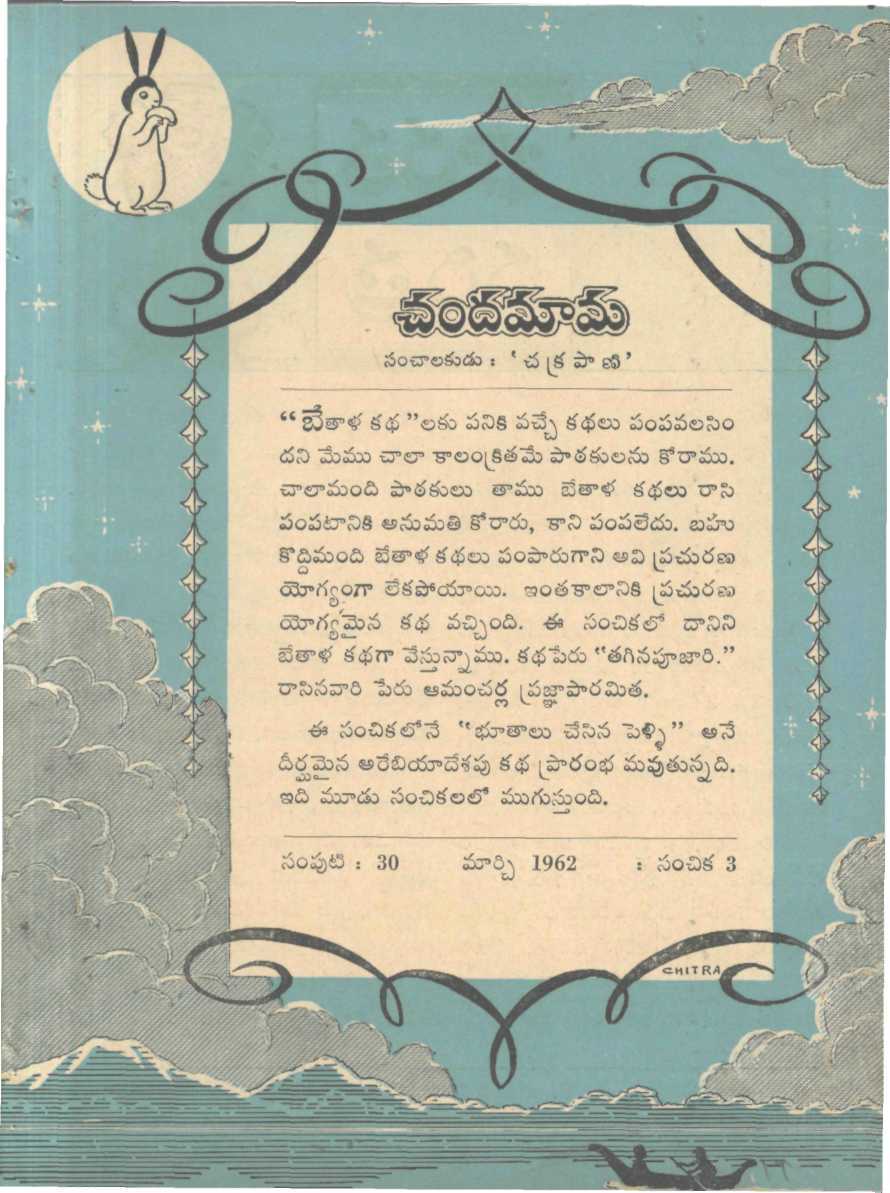 చందమామ
సంచాలకుడు : ‘చక్రపాణి’
“బేతాళ కథ”లకు పనికి వచ్చే కథలు పంపవలసిం
దని మేము చాలా కాలంక్రితమే పాఠకులను కోరాము.
చాలామంది పాఠకులు తాము బేతాళ కథలు రాసి
పంపటానికి అనుమతి కోరారు, కాని పంపలేదు. బహు
కొద్దిమంది బేతాళ కథలు పంపారుగాని అవి ప్రచురణ
యోగ్యంగా లేకపోయాయి. ఇంతకాలానికి ప్రచురణ
యోగ్యమైన కథ వచ్చింది. ఈ సంచికలో దానిని
బేతాళ కథగా వేస్తున్నాము. కథపేరు “తగినపూజారి.”
రాసినవారి పేరు ఆమంచర్ల ప్రజ్ఞాపారమిత.
ఈ సంచికలోనే “భూతాలు చేసిన పెళ్ళి” అనే
దీర్ఘమైన అరేబియాదేశపు కథ ప్రారంభ మవుతున్నది.
ఇది మూడు సంచికలలో ముగుస్తుంది.
సంపుటి : 30 మార్చి 1962 : సంచిక 3
CHITRA